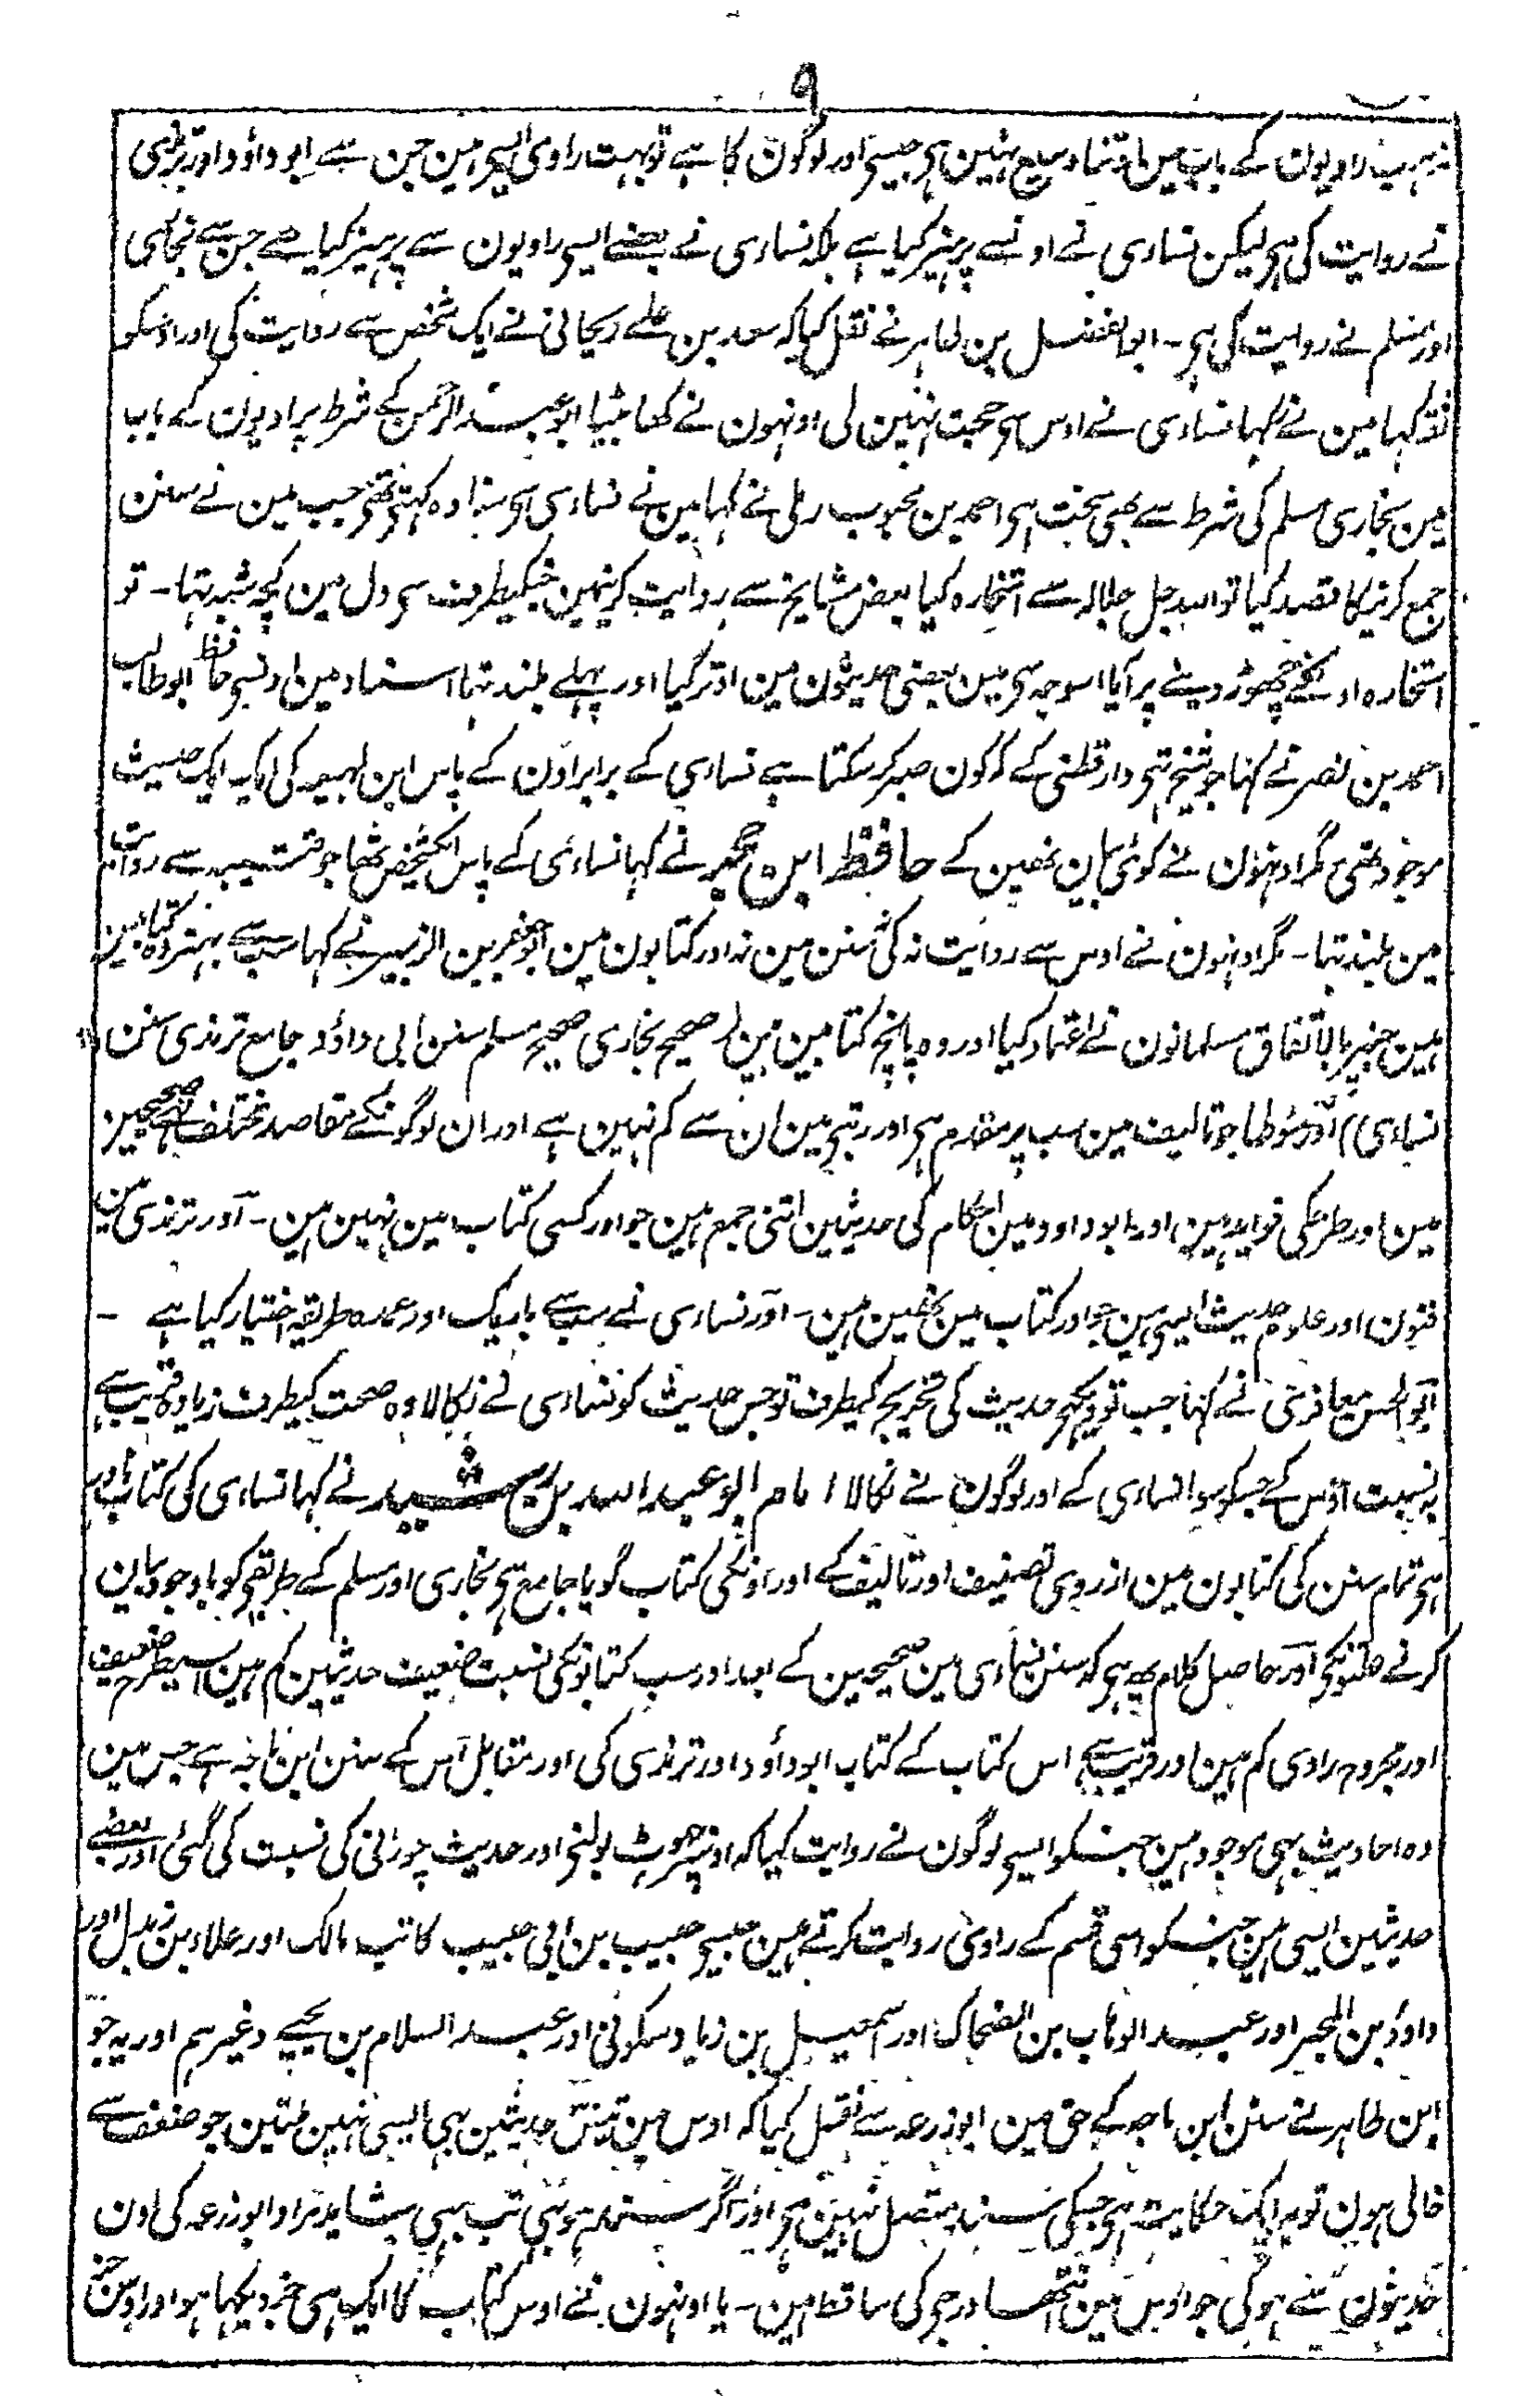 ۹
مذہب راویون کے باب مین اتنا وسیع نہین ہی جیسی اور لوگون کا ہے تو بہت راوی ایسی ہین جن سے ابو داؤد اور ترمذی
نے روایت کی ہی لیکن نساءی نے اونسے پرہیز کیا ہے بلکہ نساءی نے بعضے ایسی راویون سے پرہیز کیا ہے جن سے بخاری
اور مسلم نے روایت کی ہی ۔ ابو الفضل بن طاہر نے نقل کیا کہ سعد بن علے ریحانی نے ایک شخص سے روایت کی اور اوسکو
ثقہ کہا مین نے کہا نساءی نے اوس سی حجت نہین لی اونہون نے کھا بیٹیا ابو عبد الرحمن کے شرط راویون کے باب
مین بخاری مسلم کی شرط سے بھی سخت ہی احمد بن محبوب رملی نے کہا مین نے نساءی سی سنا وہ کہتی تھی جب مین نے سنن
جمع کرنیکا قصد کیا تو اللہ جل جلالہ سے استخارہ کیا بعض مشایخ سے روایت کرنیمین جنکیطرف سی دل مین کچھ شبہ تہا ۔ تو
استخارہ اونکے چھوڑ دینے پر آیا اسوجہ سی مین بعضی حدیثون مین اوتر گیا اور پہلے بلند تہا اسناد مین اونسی حافظ ابو طالب
احمد بن نصر نے کہا جو شیخ تہی دارقطنی کے کہ کون صبر کر سکتا ہے نساءی کے برابر اون کے پاس ابن لہیعہ کی ایک ایک حدیث
موجود تھی مگر اونہون نے کوئی بیان نہین کے حافظ ابن حجر نے کہا نساءی کے پاس ایک شخص تھا جو قتیبہ سے روایت
مین بلند تہا ۔ مگر اونہون نے اوس سے روایت نہ کی سنن مین نہ اور کتابون مین ابو جعفر بن الزبیر نے کہا سب سے بہتر وہ کتابین
ہین جنپر بالاتفاق مسلمانون نے اعتماد کیا اور وہ پانچ کتابین ہین (صحیح بخاری صحیح مسلم سنن ابی داؤد جامع ترمذی سنن
نساءی) اور موطا جو تالیف مین سب پر مقدم ہی اور رتبی مین ان سے کم نہین ہے اور ان لوگونکے مقاصد مختلف تہے صحیحین
مین اور طرحکی فواید ہین اور ابو داود مین احکام کی حدیثین اتنی جمع ہین جو اور کسی کتاب مین نہین ہین ۔ اور ترمذی مین
فنون اور علوم حدیث ایسی ہین جو اور کتاب مین نہین ہین ۔ اور نساءی نے سب سے باریک اور عمدہ طریقہ اختیار کیا ہے ۔
ابو الحسن معافری نے کہا جب تو دیکھی حدیث کی تخریج کیطرف تو جس حدیث کو نساءی نے نکالا وہ صحت کیطرف زیادہ قریب ہے
بہ نسبت اوس کے جسکو سوا نساءی کے اور لوگون نے نکالا امام ابو عبد اللہ بن رشید نے کہا نساءی کی کتاب نادر
ہی تمام سنن کی کتابون مین از روی تصنیف اور تالیف کے اور اونکی کتاب گویا جامع ہی بخاری اور مسلم کے طریقی کو باوجود بیان
کرنے علتونکی اور حاصل کلام یہ ہی کہ سنن نساءی مین صحیحین کے بعد اور سب کتابونکی نسبت ضعیف حدیثین کم ہین اسیطرح ضعیف
اور مجروح راوی کم ہین اور قریب ہے اس کتاب کے کتاب ابو داؤد اور ترمذی کی اور مقابل اس کے سنن ابن ماجہ ہے جس مین
وہ احادیث بہی موجود ہین جنکو ایسی لوگون نے روایت کیا کہ اونپر جھوٹ بولنی اور حدیث چورانی کی نسبت کی گئی اور بعضے
حدیثین ایسی ہین جنکو اسی قسم کے راوی روایت کرتے ہین جیسی حبیب بن ابی حبیب کاتب مالک اور علاء بن زیدل اور
داؤد بن المحبر اور عبد الوہاب بن الضحاک اور اسمعیل بن زیاد سکونی اور عبد السلام بن یحیے وغیرہم اور یہ جو
ابن طاہر نے سنن ابن ماجہ کے حق مین ابو زرعہ سے نقل کیا کہ اوس مین تیس حدیثین بہی ایسی نہین ملتین جو ضعف سے
خالی ہون تو یہ ایک حکایت ہی جسکی سند متصل نہین ہی اور اگر سند ہو بہی تب بہی شاید مراد ابو زرعہ کی اون
حدیثون سے ہوگی جو اوس مین نتہا درجی کی ساقط ہین ۔ یا اونہون نے اوس کتاب کا ایک ہی جز دیکہا ہو اور اوس